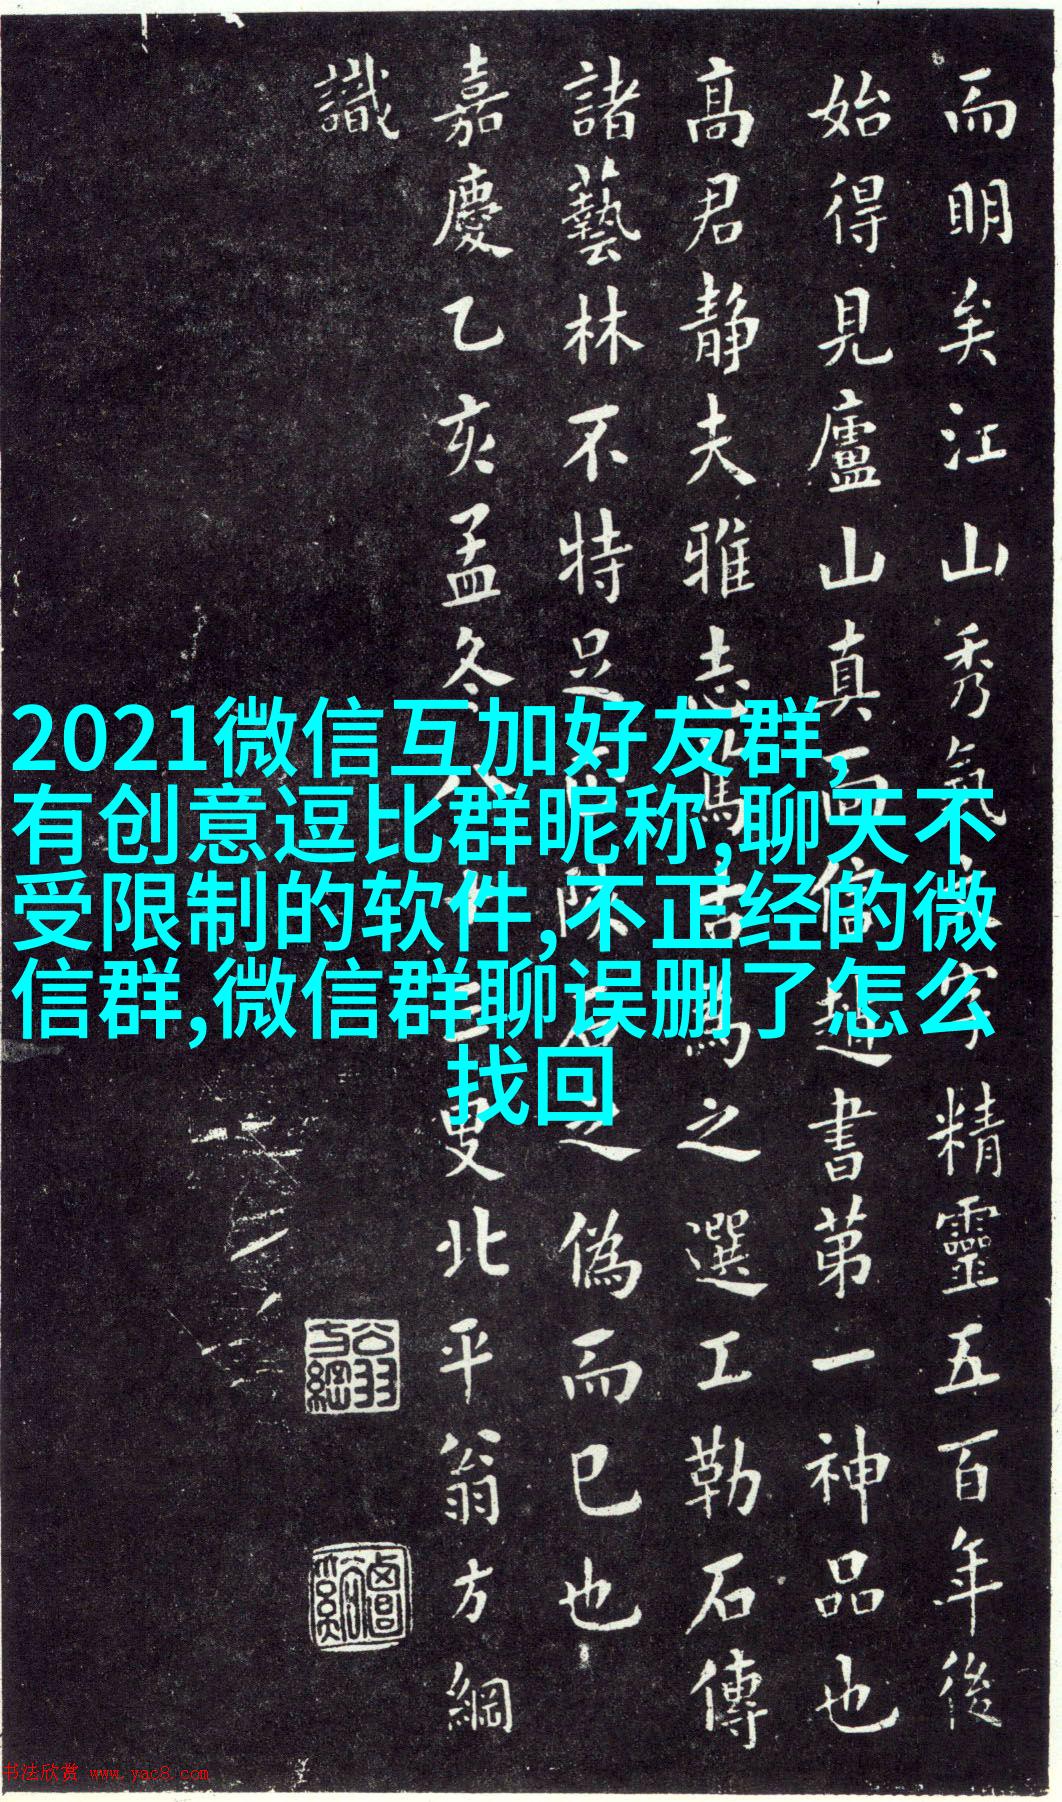 而明矣江山秀氣
精靈五百年後
始得見廬山真面
書第一神品也
高君静夫雅志
為之選工勒石傳
諸藝林不特足
偽而已也
嘉慶乙亥孟冬八
叟北平翁方綱
識
2021微信互加好友群,
有创意逗比群昵称,聊天不
受限制的软件,不正经的微
信群,微信群聊误删了怎么
找回
书法欣赏 www.yac8.com